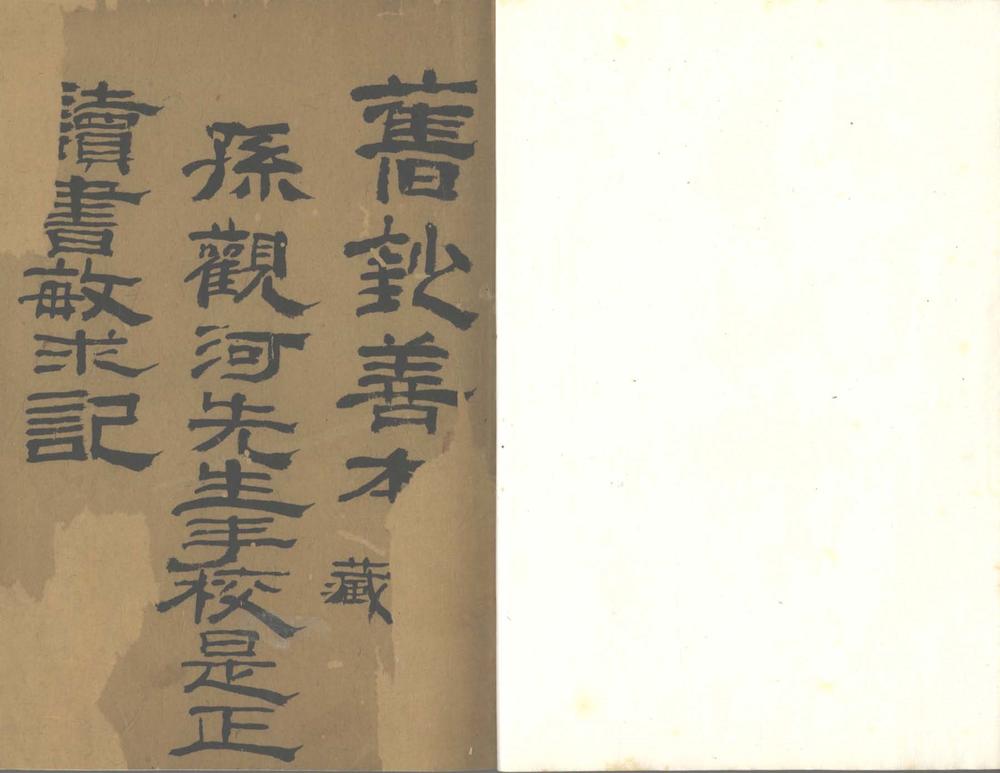 舊鈔善本 藏
孫觀河先生手校是正
讀書敏求記